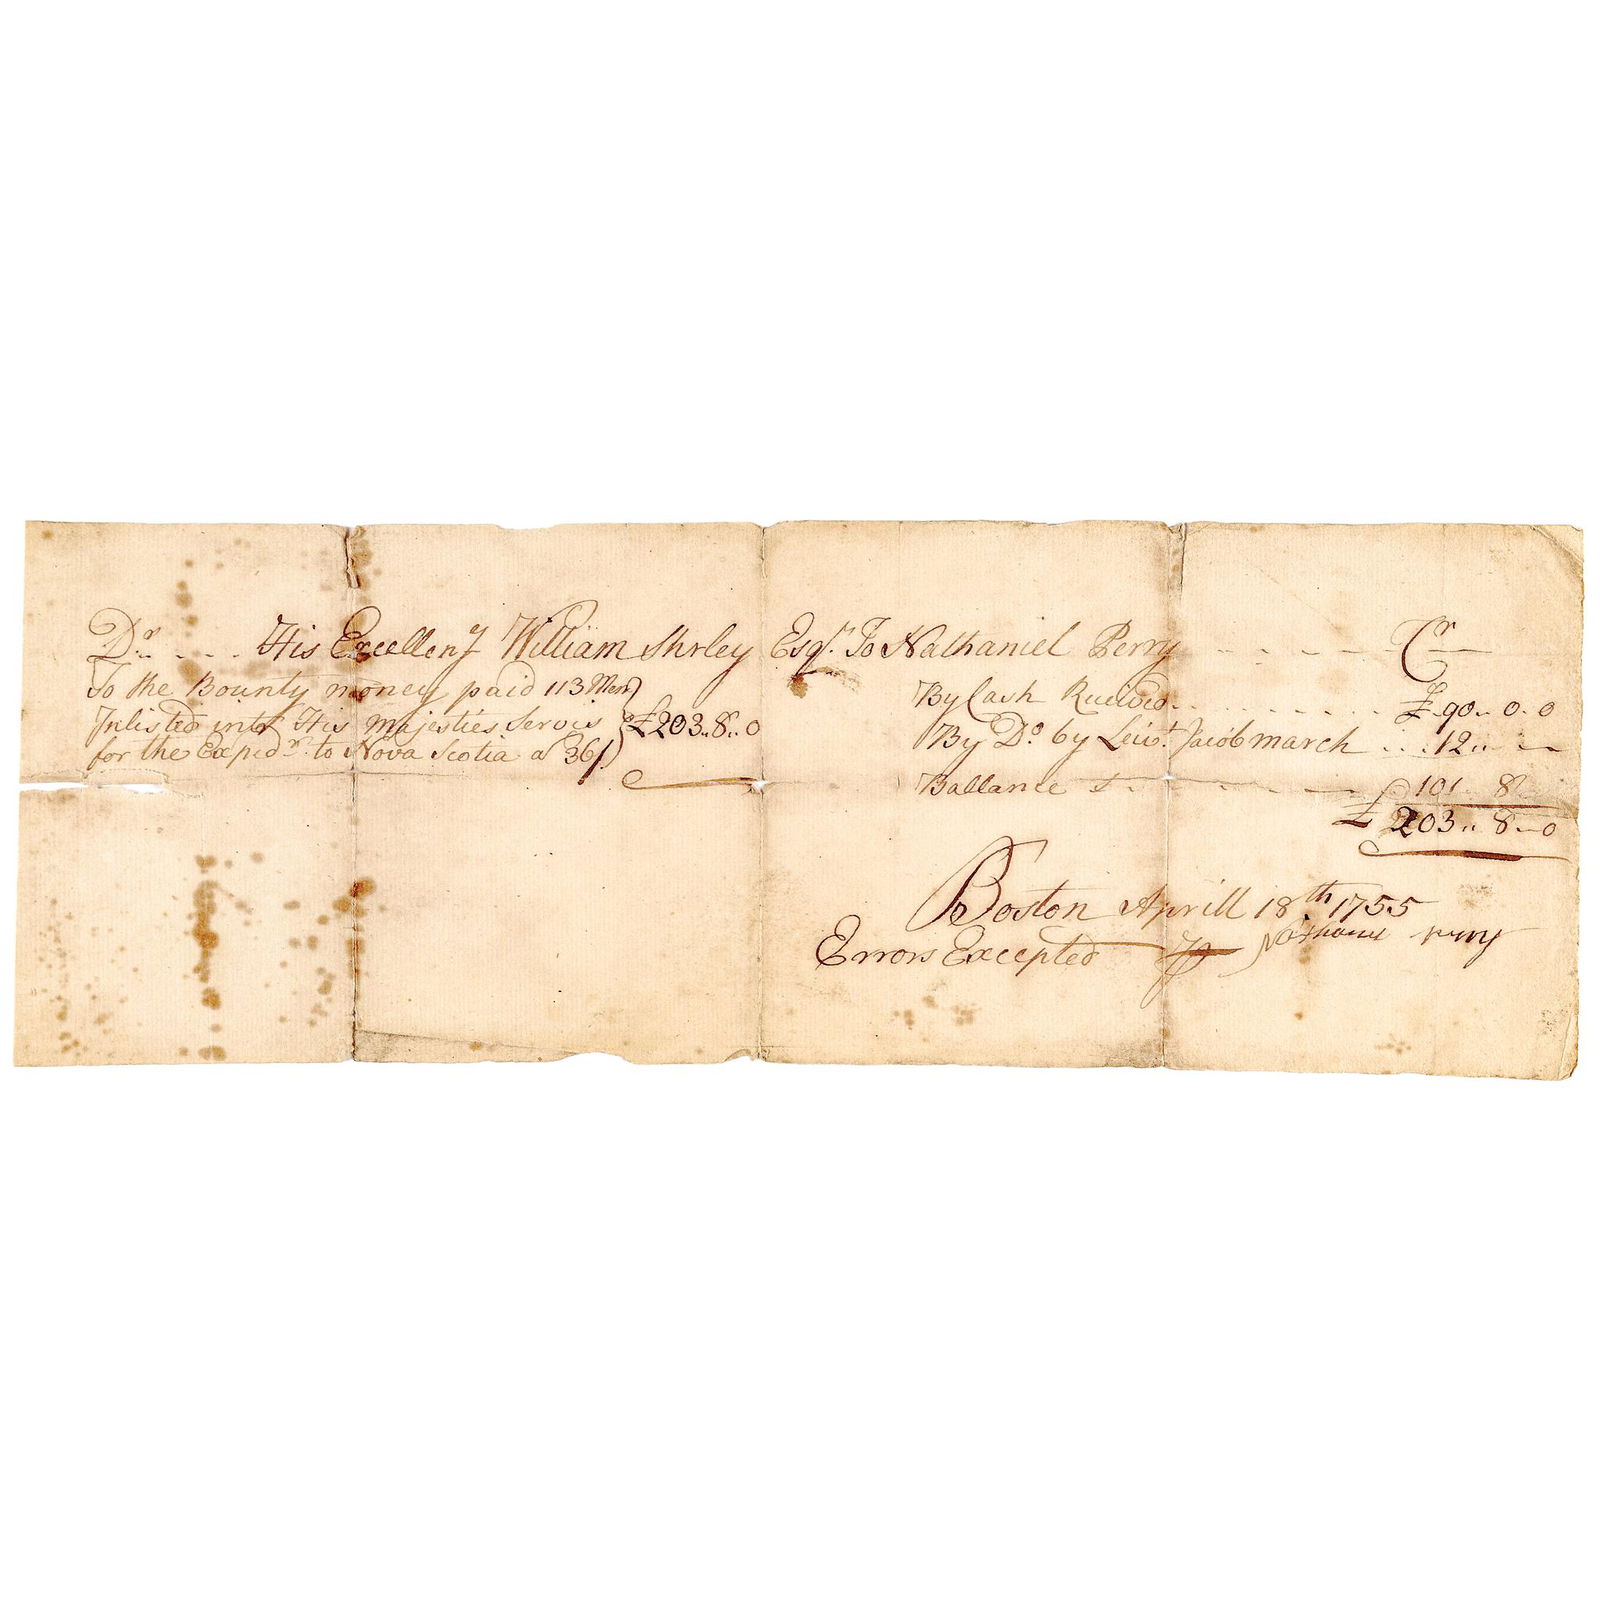 Dr His Excellency William Shrley Esqr. To Nathaniel Perry Cr
To the Bounty money paid 113 Men
Inlisted into His Majesties Servis £203..8..0
for the Expedn. to Nova Scotia a 36/
By Cash Recived £90..0..0
By Do by Leiut. Jacob march 12..
Ballance 101 8
£203..8..0
Boston Aprill 18th 1755
Errors Excepted Nathaniel Perry